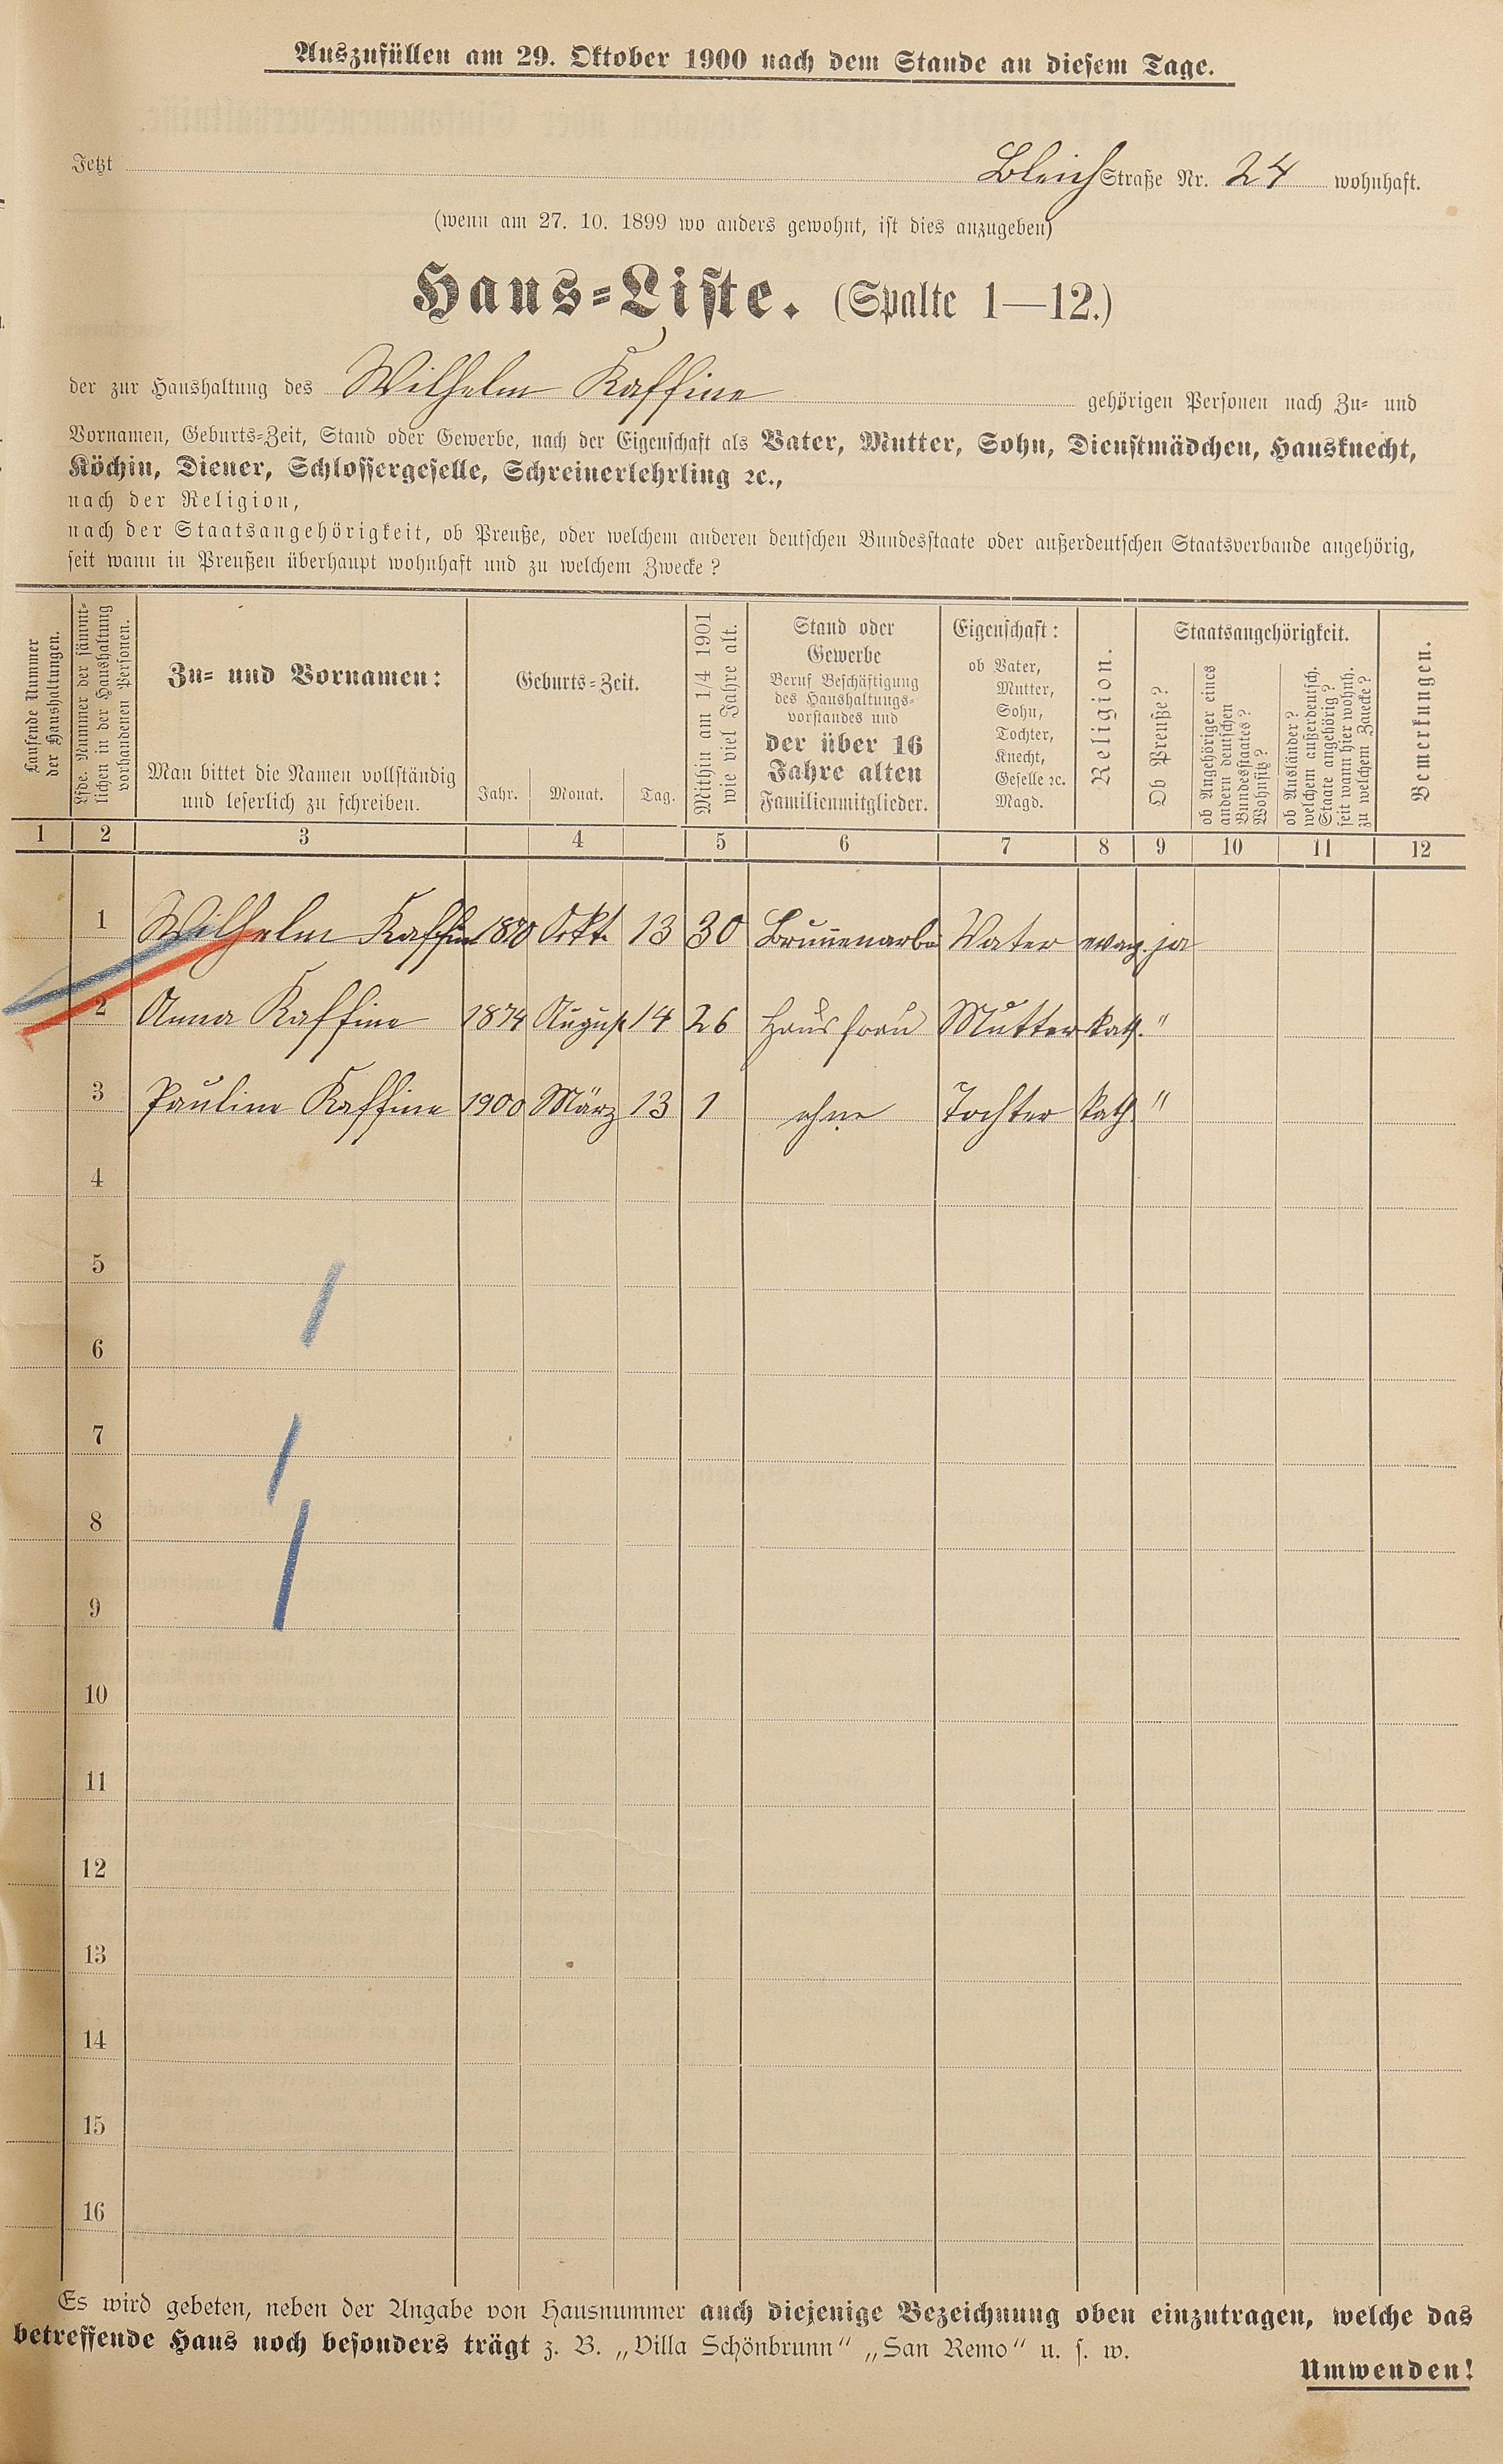 Auszufüllen am 29. Oktober 1900 nach dem Stande an diesem Tage.
Jetzt Bleich Straße Nr. 24 wohnhaft.
(wenn am 27. 10. 1899 wo anders gewohnt, ist dies anzugeben)
Haus=Liste. (Spalte 1—12.)
der zur Haushaltung des Wilhelm Kaffine gehörigen Personen nach Zu= und
Vornamen, Geburts=Zeit, Stand oder Gewerbe, nach der Eigenschaft als Vater, Mutter, Sohn, Dienstmädchen, Hausknecht,
Köchin, Diener, Schlossergeselle, Schreinerlehrling ꝛc.,
nach der Religion,
nach der Staatsangehörigkeit, ob Preuße, oder welchem anderen deutschen Bundesstaate oder außerdeutschen Staatsverbande angehörig,
seit wann in Preußen überhaupt wohnhaft und zu welchem Zwecke?
Laufende Nummer
der Haushaltungen.
Lfde. Nummer der sämmt=
lichen in der Haushaltung
vorhandenen Personen.
Zu= und Vornamen:
Man bittet die Namen vollständig
und leserlich zu schreiben.
Geburts=Zeit.
Jahr. Monat. Tag.
Mithin am 1/4 1901
wie viel Jahre alt.
Stand oder
Gewerbe
Beruf Beschäftigung
des Haushaltungs=
vorstandes und
der über 16
Jahre alten
Familienmitglieder.
Eigenschaft:
ob Vater,
Mutter,
Sohn,
Tochter,
Knecht,
Geselle ꝛc.
Magd.
Religion.
Staatsangehörigkeit.
Ob Preuße?
ob Angehöriger eines
andern deutschen
Bundesstaates?
Wohnsitz?
ob Ausländer?
welchem außerdeutsch.
Staate angehörig?
seit wann hier wohnh.
zu welchem Zwecke?
Bemerkungen.
1 2 3 4 5 6 7 8 9 10 11 12
1 Wilhelm Kaffine 1870 Okt. 13 30 Brunnenarbei Vater evag. ja
2 Anna Kaffine 1874 August 14 26 Hausfrau Mutter kath. "
3 Pauline Kaffine 1900 März 13 1 ohne Tochter kath. "
4
5
6
7
8
9
10
11
12
13
14
15
16
Es wird gebeten, neben der Angabe von Hausnummer auch diejenige Bezeichnung oben einzutragen, welche das
betreffende Haus noch besonders trägt z. B. „Villa Schönbrunn" „San Remo" u. s. w.
Umwenden!